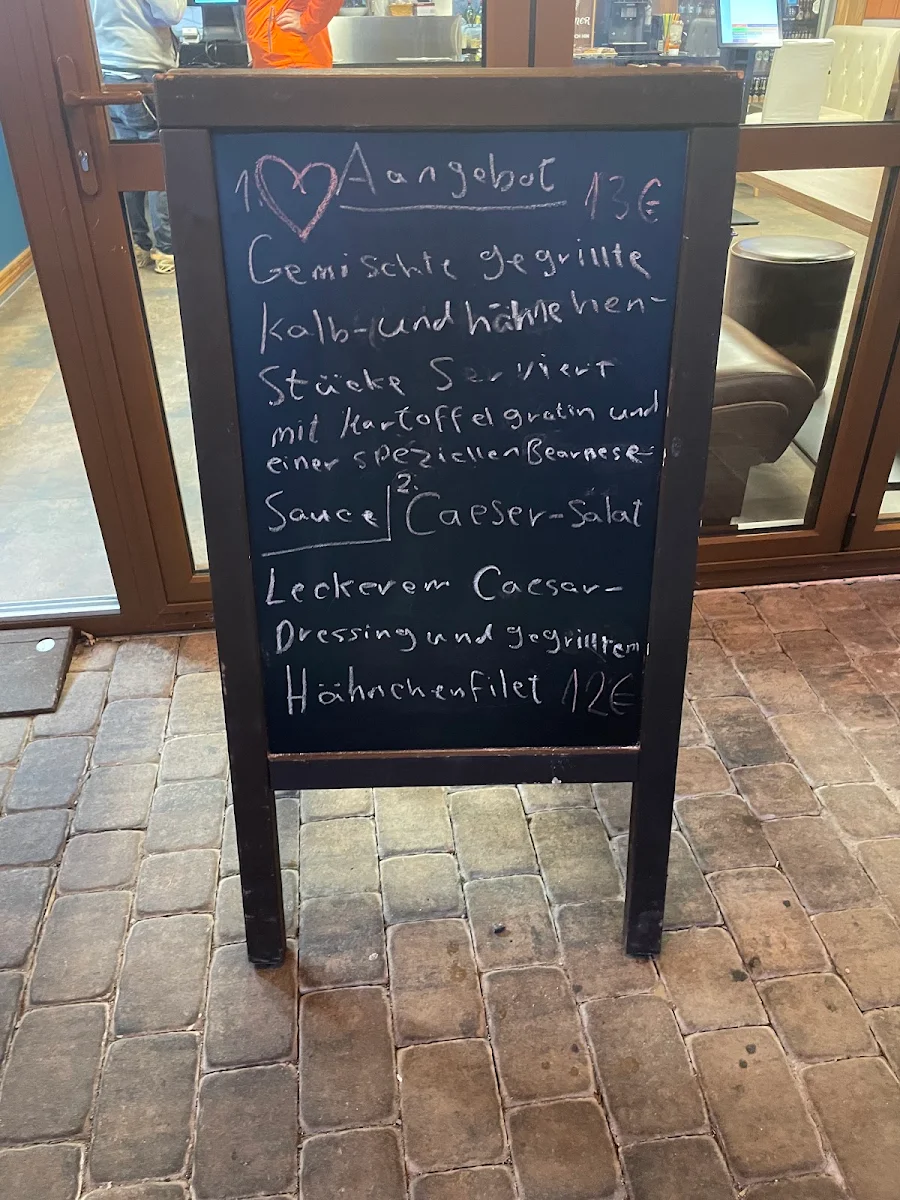 1. Aangebot 13€
Gemischte gegrillte
Kalb-und hähnchen-
Stücke Serviert
mit Kartoffelgratin und
einer speziellen Bearnese-
Sauce
2. Caeser-Salat
Leckerem Caesar-
Dressing und gegrilltem
Hähnchenfilet 12€